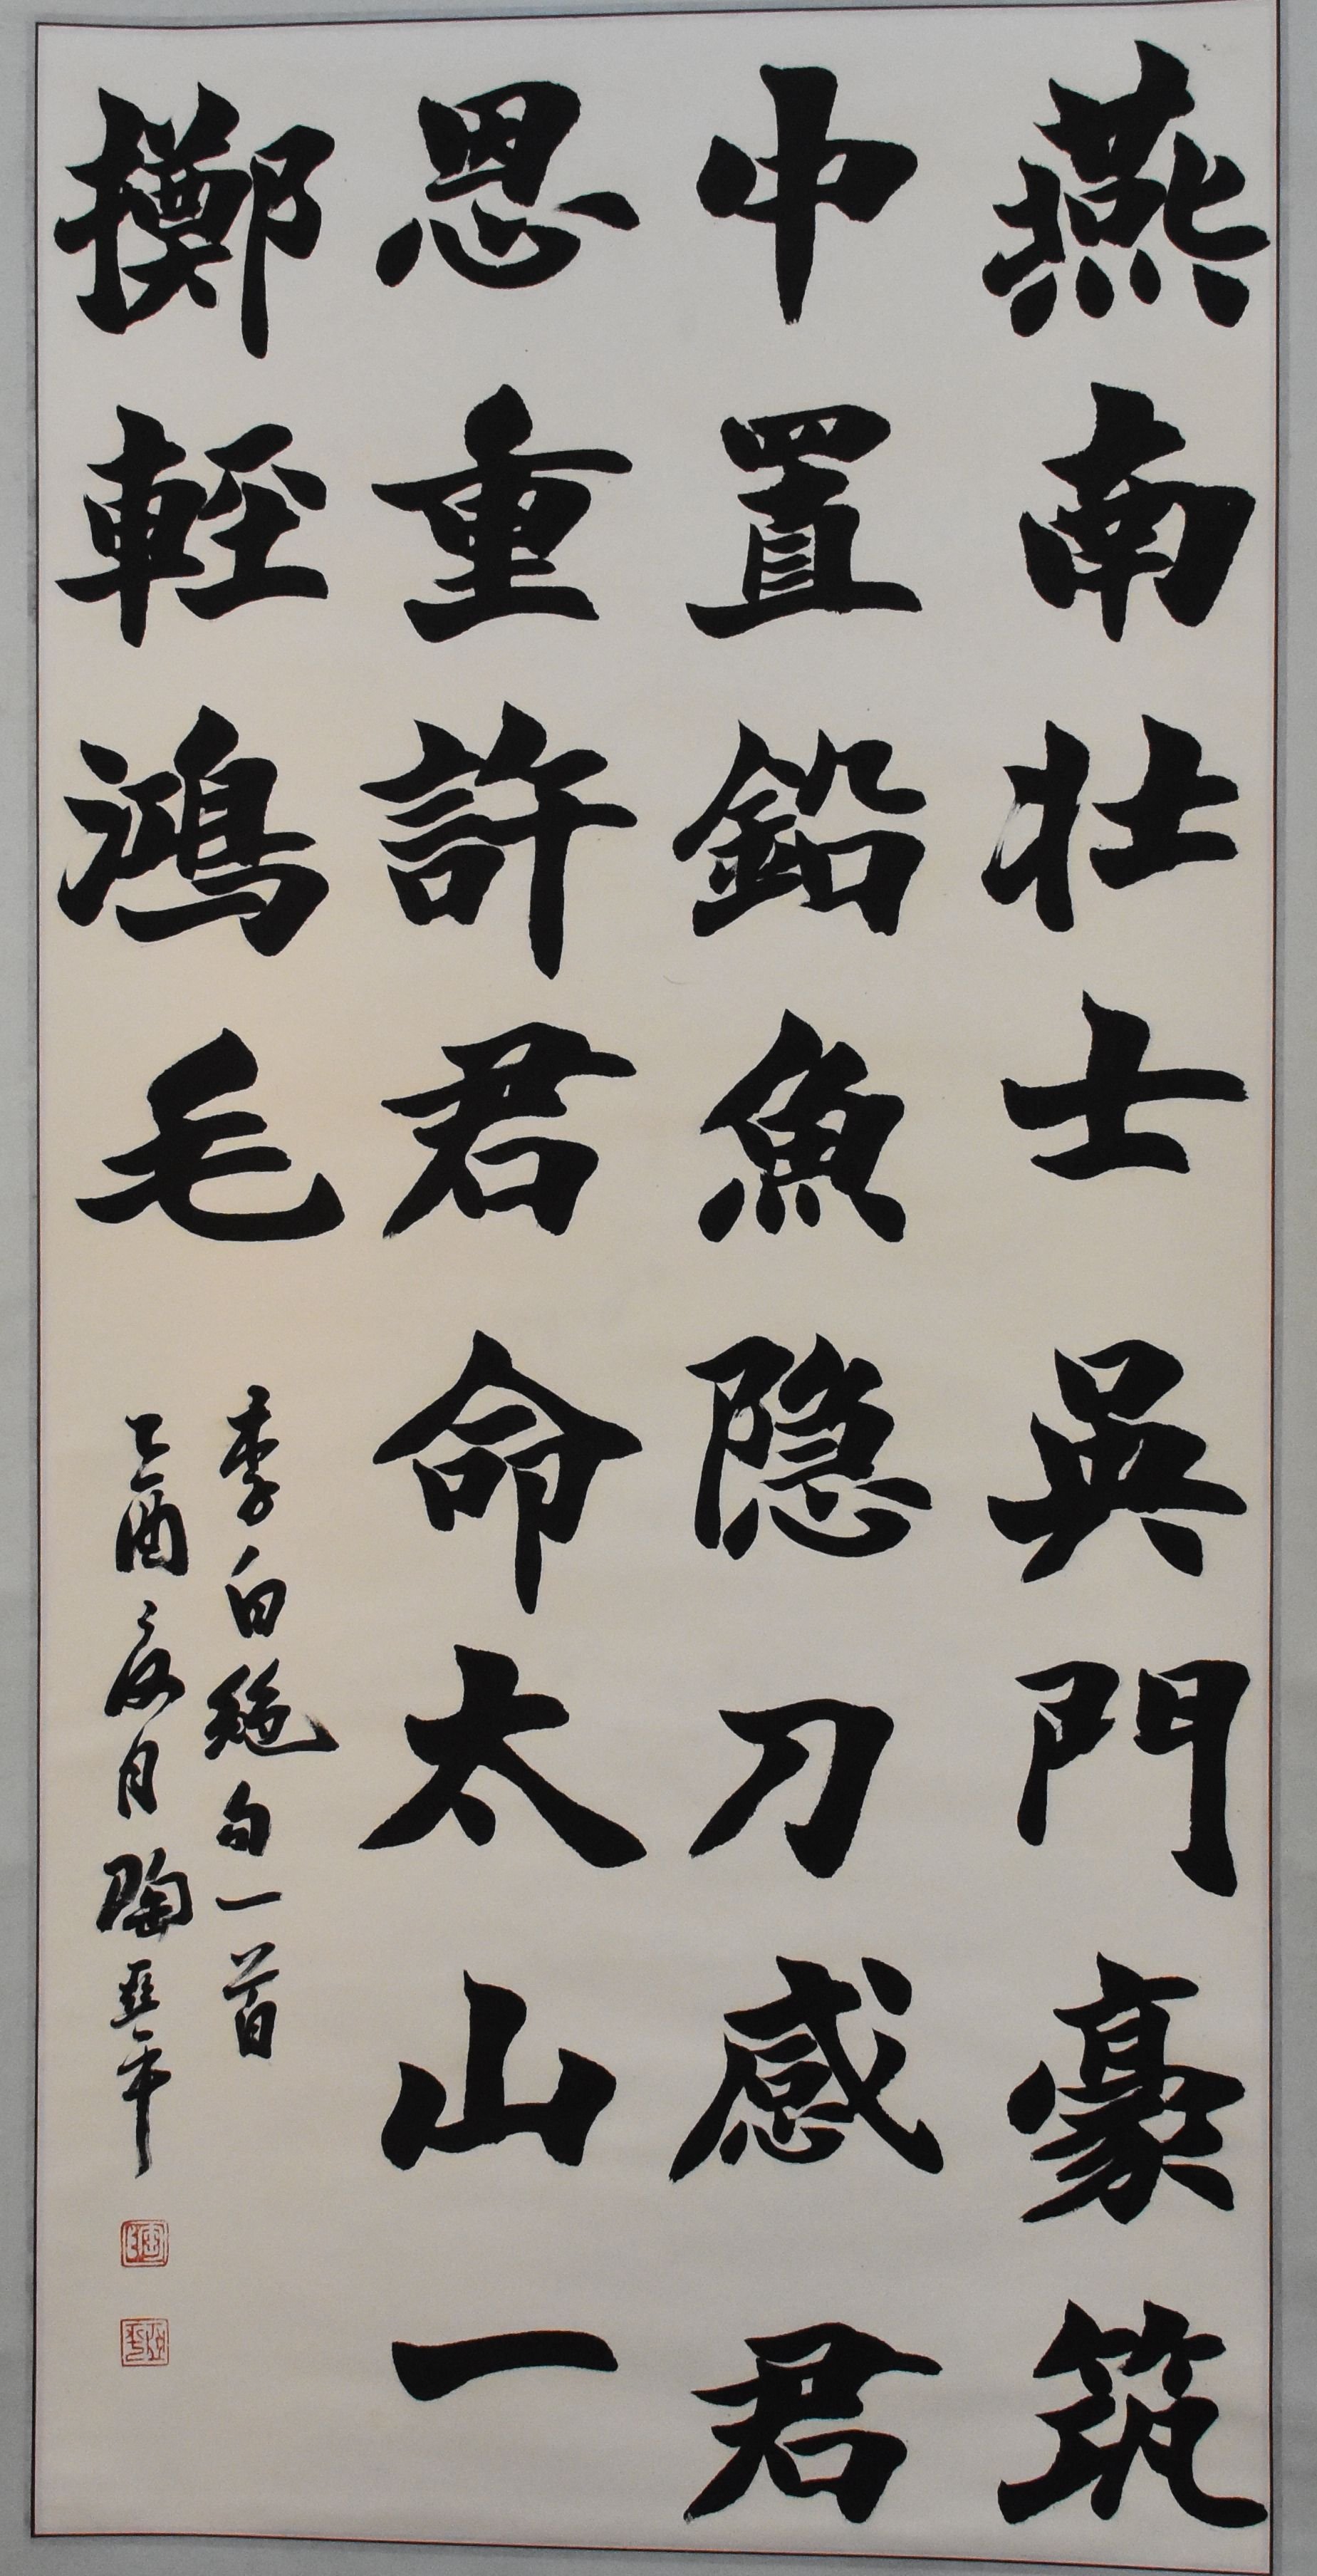 燕南壮士吳門豪筑
中置鉛魚隐刀感君
恩重許君命太山一
擲輕鴻毛
李白絕句一首
乙酉夏月陶亞平